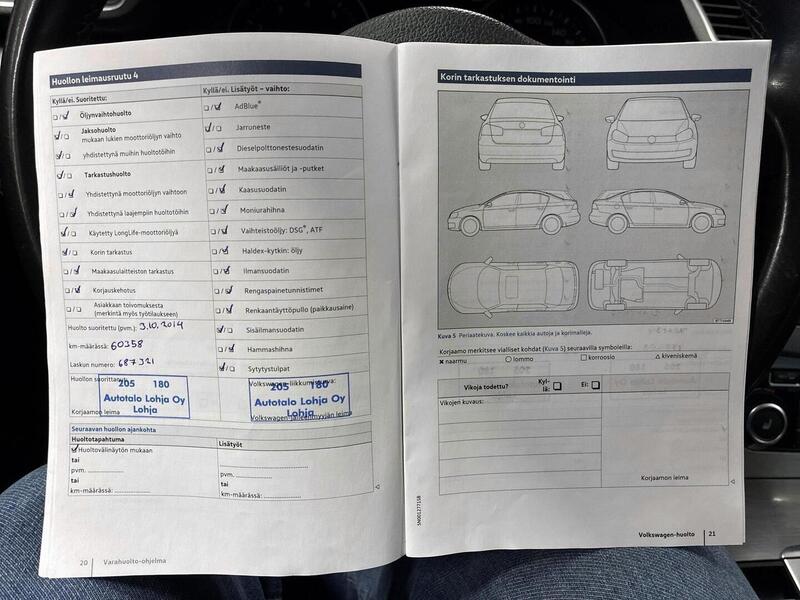 Huollon leimausruutu 4
Kyllä/ei. Suoritettu:
Öljynvaihtohuolto
Jaksohuolto
mukaan lukien moottoriöljyn vaihto
yhdistettynä muihin huoltotöihin
Tarkastushuolto
Yhdistettynä moottoriöljyn vaihtoon
Yhdistettynä laajempiin huoltotöihin
Käytetty LongLife-moottoriöljyä
Korin tarkastus
Maakaasulaitteiston tarkastus
Korjauskehotus
Asiakkaan toivomuksesta
(merkintä myös työtilaukseen)
Huolto suoritettu (pvm.) 3.10.2014
km-määrässä: 60358
Laskun numero: 687321
Huollon suorittanut
205 180
Autotalo Lohja Oy
Lohja
Korjaamon leima
Kyllä/ei. Lisätyöt – vaihto:
AdBlue®
Jarruneste
Dieselpolttonestesuodatin
Maakaasusäiliöt ja -putket
Kaasusuodatin
Moniurahihna
Vaihteistoöljy: DSG®, ATF
Haldex-kytkin: öljy
Ilmansuodatin
Rengaspainetunnistimet
Renkaantäyttöpullo (paikkausaine)
Sisäilmansuodatin
Hammashihna
Sytytystulpat
205 180
Autotalo Lohja Oy
Lohja
Seuraavan huollon ajankohta
Huoltotapahtuma
Lisätyöt
Huoltovälinäytön mukaan
tai
pvm.
tai
km-määrässä:
pvm.
tai
km-määrässä:
20 Varahuolto-ohjelma
Korin tarkastuksen dokumentointi
Kuva 5 Periaatekuva. Koskee kaikkia autoja ja korimalleja.
Korjaamo merkitsee vialliset kohdat (Kuva 5) seuraavilla symboleilla:
naarmu lommo korroosio kiveniskemä
Vikoja todettu? Kyl-
lä: Ei:
Vikojen kuvaus:
Korjaamon leima
Volkswagen-huolto 21